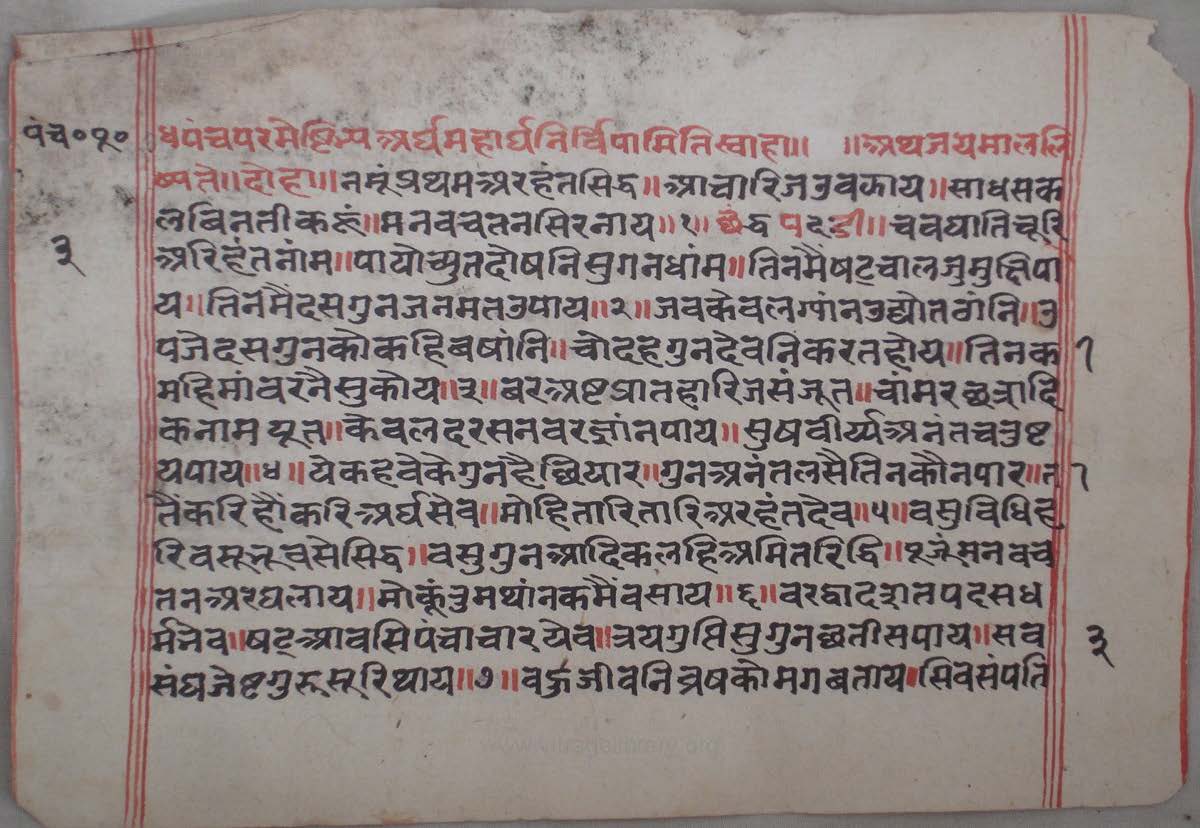 पंच०१०
धपंचपरमेष्टिभ्य अर्घमहार्घनिर्विपामितिस्वाहा॥ ॥अथजयमाललि
ष्यते॥दोहा॥नमूंप्रथमअरहंतसिद्ध॥आचारिजउवझाय॥साधसक
लबिनतीकरूं॥मनवचतनसिरनाय॥१॥छंद पद्धडी॥चवघातिचूरि
३
अरिहंतनांम॥पायोच्युतदोषनिसुगनधांम॥तिनमैंषट्चालजुमुद्दिपा
य॥तिनमैंदसगुनजनमतउपाय॥२॥जबकेवलग्यांनउद्योतवांनि॥उ
पजैदसगुनकोकहिबषांनि॥चौदहगुनदेवनिकरतहोय॥तिनक
महिमांवरनैसुकोय॥३॥बरअष्टप्रातहारिजसंजूत॥चांमरछत्रादि
कनामयूत॥केवलदरसनवरज्ञांनपाय॥सुषवीर्य्यअनंतचतुष्ट
यपाय॥४॥येकहवेकेगुनहैछियार॥गुनअनंतलसैतिनकौनपार॥त
तैंकरिहौंकरिअर्घसेव॥मोहितारितारिअरहंतदेव॥५॥वसुविधिह
रिवसूभूवसेसिद्ध॥वसुगुनआदिकलहिअमितरिद्धि॥पूजूंमनवच
तनअरघलाय॥मोकूंतुमथांनकमैंवसाय॥६॥वरद्वादशतपदसध
र्मनेव॥षट्आवसिपंचाचारयेव॥त्रयगुप्तिसुगुनछतीसपाय॥सव
३
संघजेष्टगुरूसूरिथाय॥७॥वहुजीवनिव्रषकोमगबताय॥सिवसंपति